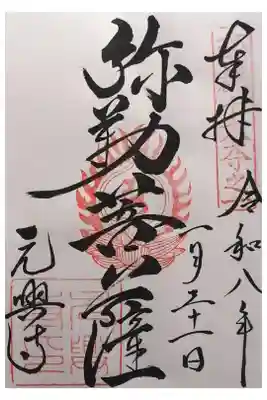 奉拝
令和八年
一月三十一日
弥勒菩薩
元興寺